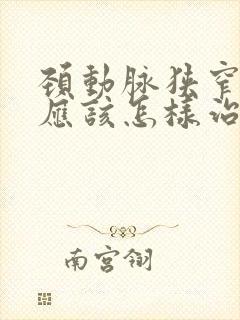 頚動脉狭窄
應該怎樣治
南宫翎